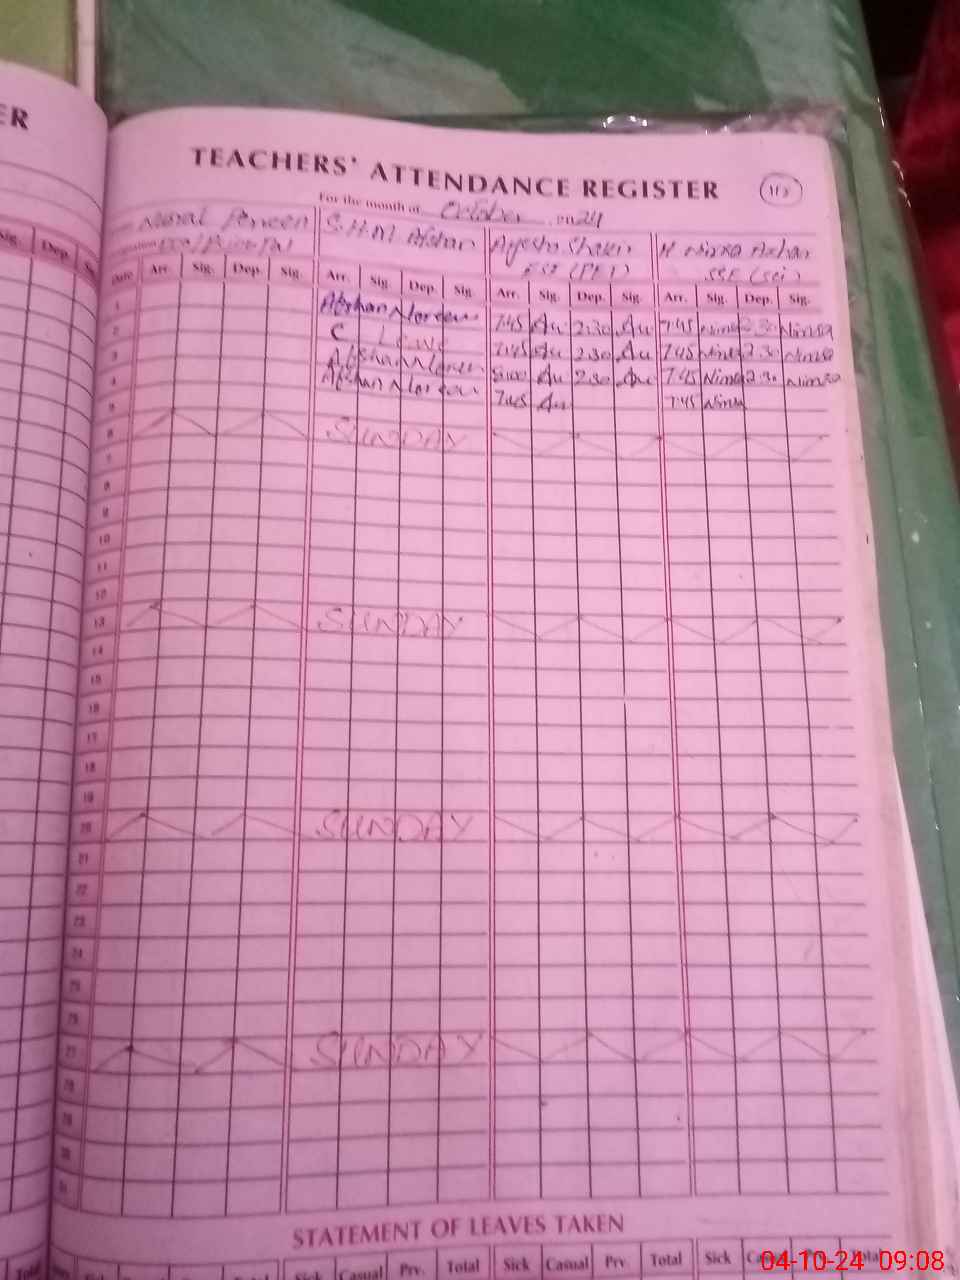 ER
TEACHERS' ATTENDANCE REGISTER
For the month of October 2024
Perveen S.H.M Afshan Ayesha H Nimra Azhar
SSE (Sci)
Sig. Dep.
Date Arr. Sig. Dep. Sig. Arr. Sig. Dep. Sig. Arr. Sig. Dep. Sig. Arr. Sig. Dep. Sig.
1 Afshan Noreen 7:45 Au 2:30 Au 7:45 Nimra 2:30 Nimra
2 C. Leave 7:45 Au 2:30 Au 7:45 Nimra 2:30 Nimra
3 Afshan Noreen 8:00 Au 2:30 Au 7:45 Nimra 2:30 Nimra
4 Afshan Noreen 7:45 Au 7:45 Nimra
5
6 SUNDAY
7
8
9
10
11
12
13 SUNDAY
14
15
16
17
18
19
20 SUNDAY
21
22
23
24
25
26
27 SUNDAY
28
29
30
31
STATEMENT OF LEAVES TAKEN
Total Sick Casual Prv. Total Sick Casual Prv. Total Sick Casual Prv. Total
04-10-24 09:08